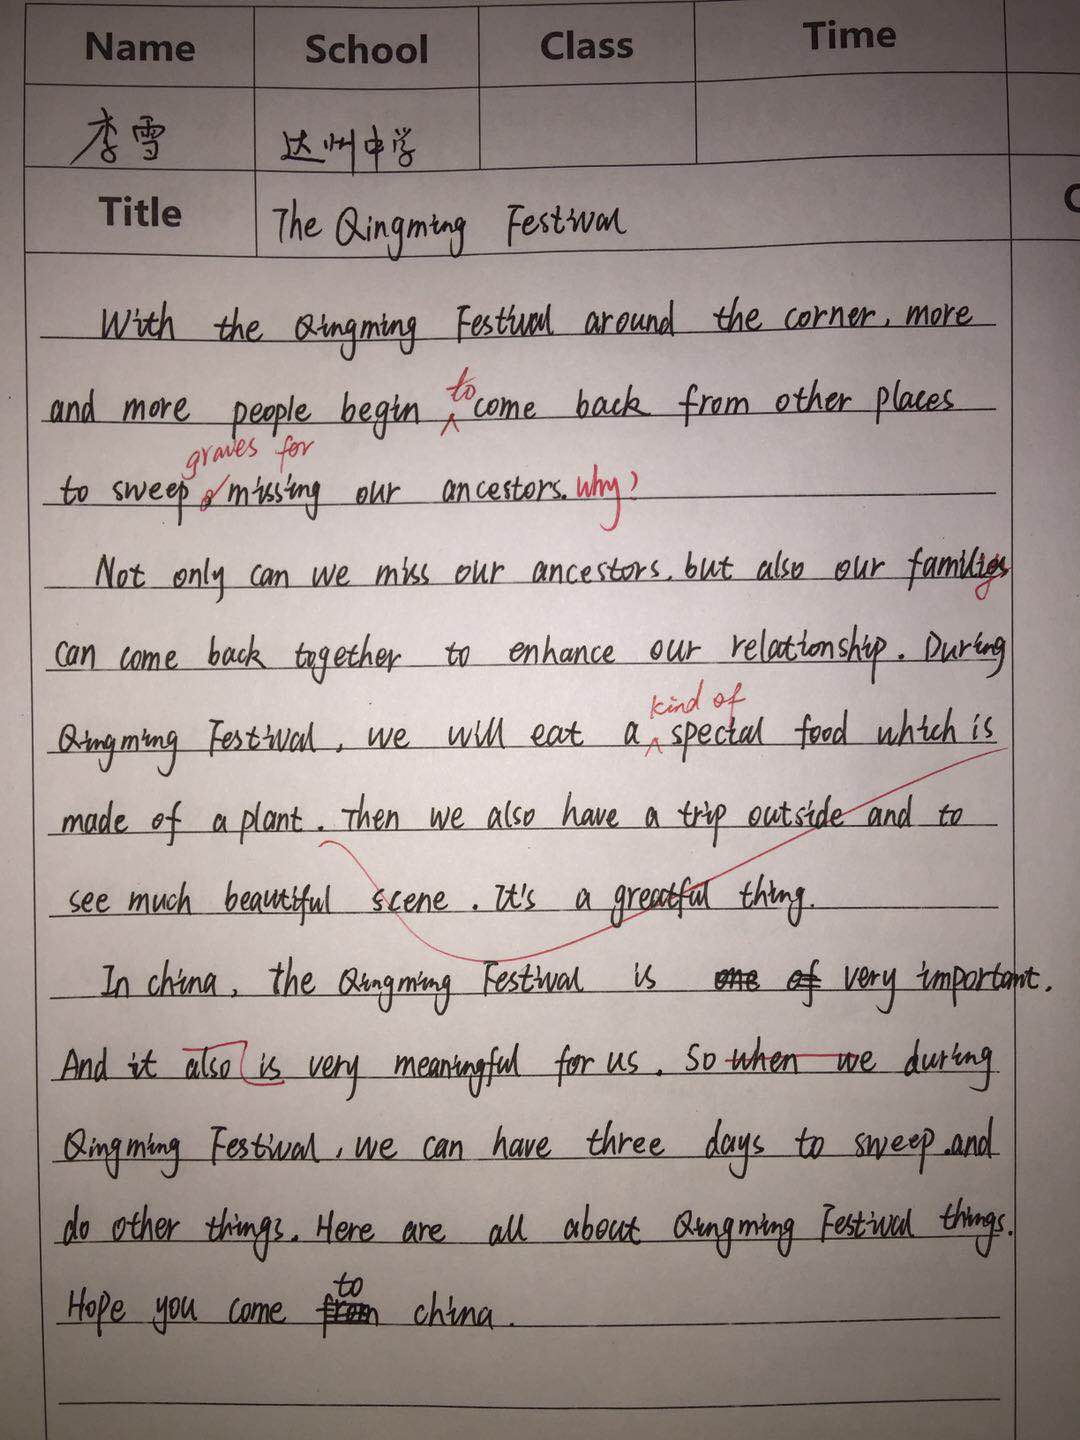 Name School Class Time
李雪 达州中学
Title The Qingming Festival C
With the Qingming Festival around the corner, more
to
and more people begin come back from other places
graves for
to sweep missing our ancestors. why?
Not only can we miss our ancestors, but also our families
can come back together to enhance our relationship. During
kind of
Qingming Festival, we will eat a special food which is
made of a plant. Then we also have a trip outside and to
see much beautiful scene. It's a greatful thing.
In china, the Qingming Festival is one of very important.
And it also is very meaningful for us. So when we during
Qingming Festival, we can have three days to sweep and
do other things. Here are all about Qingming Festival things.
to
Hope you come from china.